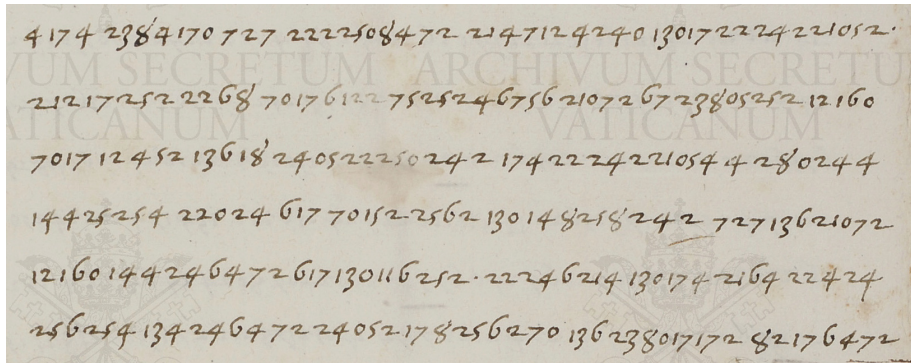 4174 2384170 727 222250847 2 214712424 0 13017222422 1052·
21217252 2268 7017612275252467562107267238052 52 12160
7017 12452 13618 24052225024 2 1742224221054 4 280244
144 25254 22024 617 70152 2562 130148258242 72713621072
12160 144246472617130116252· 222462 14 130174 2164 22424
256254 1342464722405217825627 0 1362380171 72 82176472